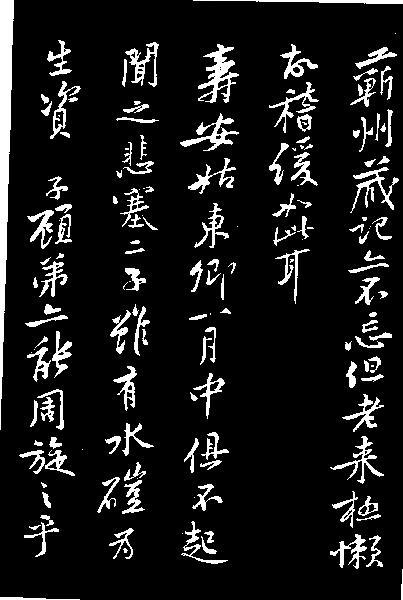 蘄州藏記亦不忘但老來極懶
故稽緩如此耳
壽安姑東卿一月中俱不起
聞之悲塞二子雖有水磑為
生資子顧弟亦能周旋之乎